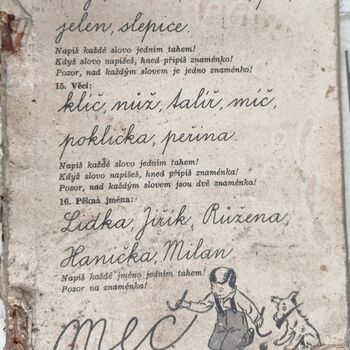 jelen, slepice.
Napiš každé slovo jedním tahem!
Když slovo napíšeš, hned připiš znaménko!
Pozor, nad každým slovem je jedno znaménko!
15. Věci:
klíč, nůž, talíř, míč,
poklička, peřina.
Napiš každé slovo jedním tahem!
Když slovo napíšeš, hned připiš znaménka!
Pozor, nad každým slovem jsou dvě znaménka!
16. Pěkná jména:
Lidka, Jiřík, Růžena,
Hanička, Milan.
Napiš každé jméno jedním tahem!
Pozor na znaménka!